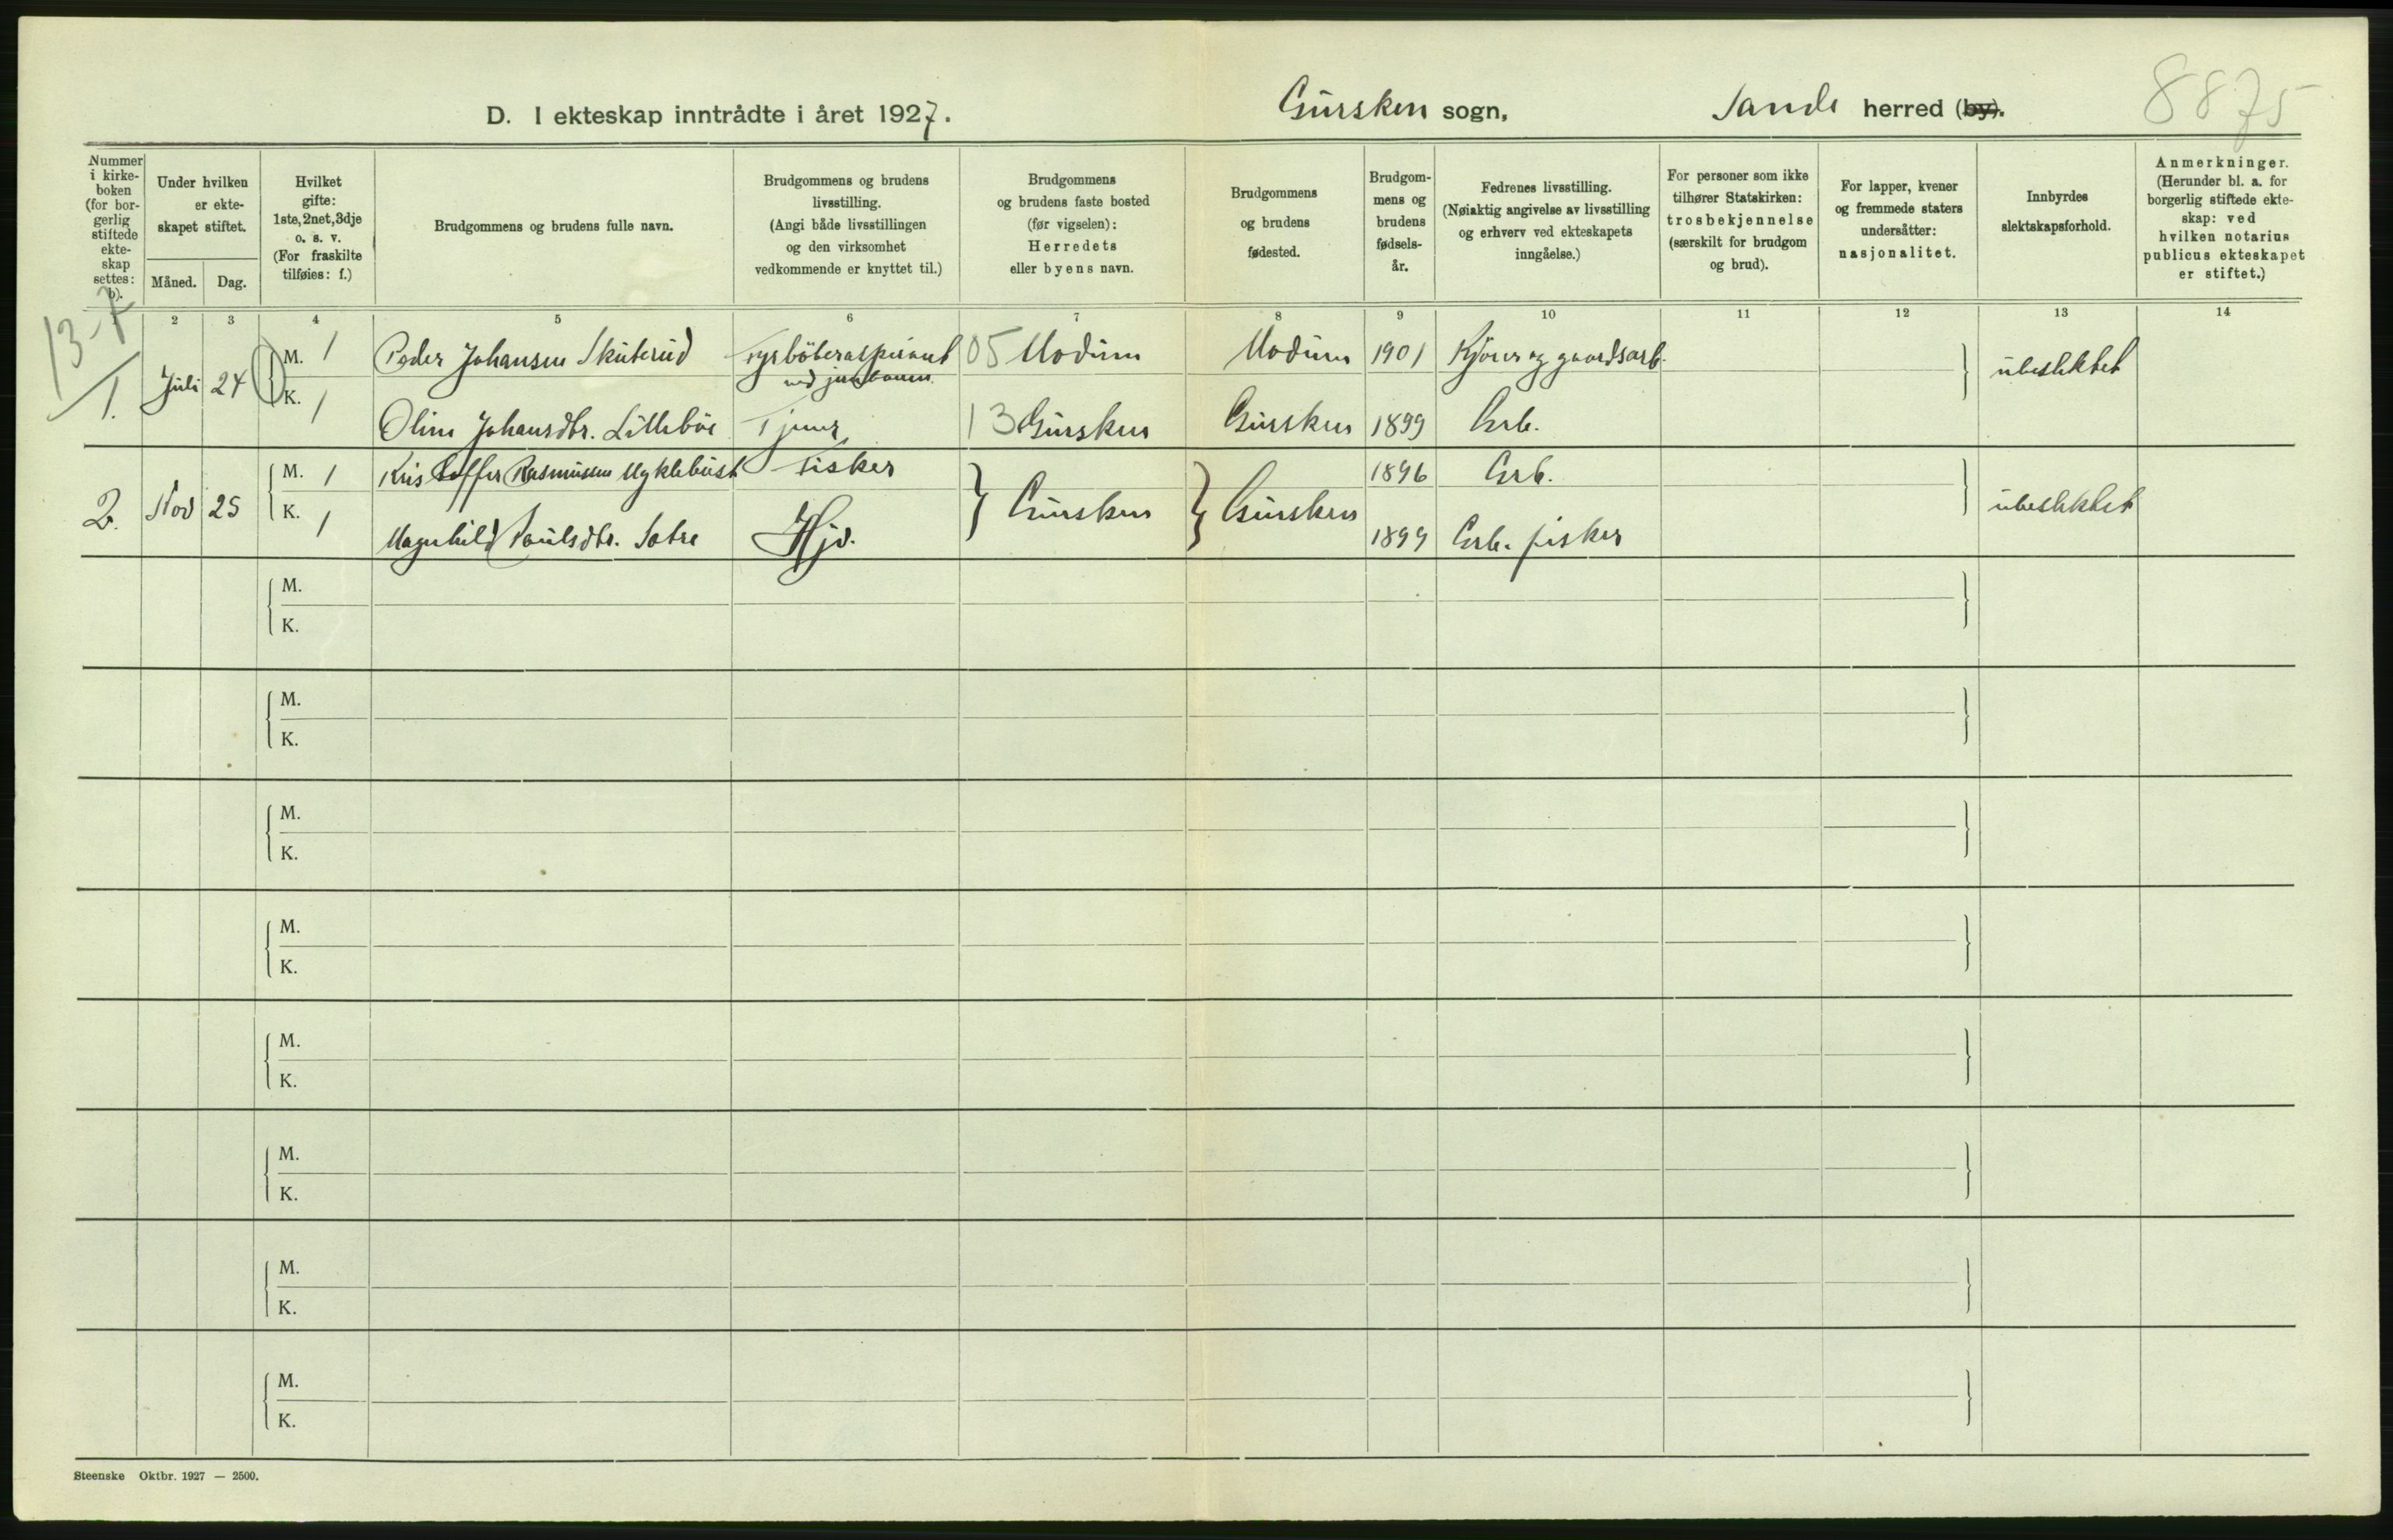 D. I ekteskap inntrådte i året 1927. Gursken sogn, Sande herred (by). 8875
Nummer i kirke- boken (for bor- gerlig stiftede ekte- skap settes: b).
Under hvilken er ekte- skapet stiftet.
Måned. Dag.
Hvilket gifte: 1ste, 2net, 3dje o. s. v. (For fraskilte tilføies: f.)
Brudgommens og brudens fulle navn.
Brudgommens og brudens livsstilling. (Angi både livsstillingen og den virksomhet vedkommende er knyttet til.)
Brudgommens og brudens faste bosted (før vigselen): Herredets eller byens navn.
Brudgommens og brudens fødested.
Brudgom- mens og brudens fødsels- år.
Fedrenes livsstilling. (Nøiaktig angivelse av livsstilling og erhverv ved ekteskapets inngåelse.)
For personer som ikke tilhører Statskirken: trosbekjennelse (særskilt for brudgom og brud).
For lapper, kvener og fremmede staters undersåtter: nasjonalitet.
Innbyrdes slektskapsforhold.
Anmerkninger. (Herunder bl. a. for borgerlig stiftede ekte- skap: ved hvilken notarius publicus ekteskapet er stiftet.)
1 2 3 4 5 6 7 8 9 10 11 12 13 14
13-7
1. Juli 24 M. 1 Peder Johansen Skuterud Fyrböteraspirant ved jernbanen 05 Modum Modum 1901 Kjörer og gaardsarb. ubeslektet
K. 1 Oline Johansdtr. Lillebøe Tjener 13 Gursken Gursken 1899 Grb.
2. Nov 25 M. 1 Kristoffer Rasmussen Myklebust Fisker Gursken Gursken 1896 Grb. ubeslektet
K. 1 Magnhild Paulsdtr. Sætre Hjv. 1899 Grb. fisker
M.
K.
M.
K.
M.
K.
M.
K.
M.
K.
M.
K.
M.
K.
M.
K.
Steenske Oktbr. 1927 — 2500.